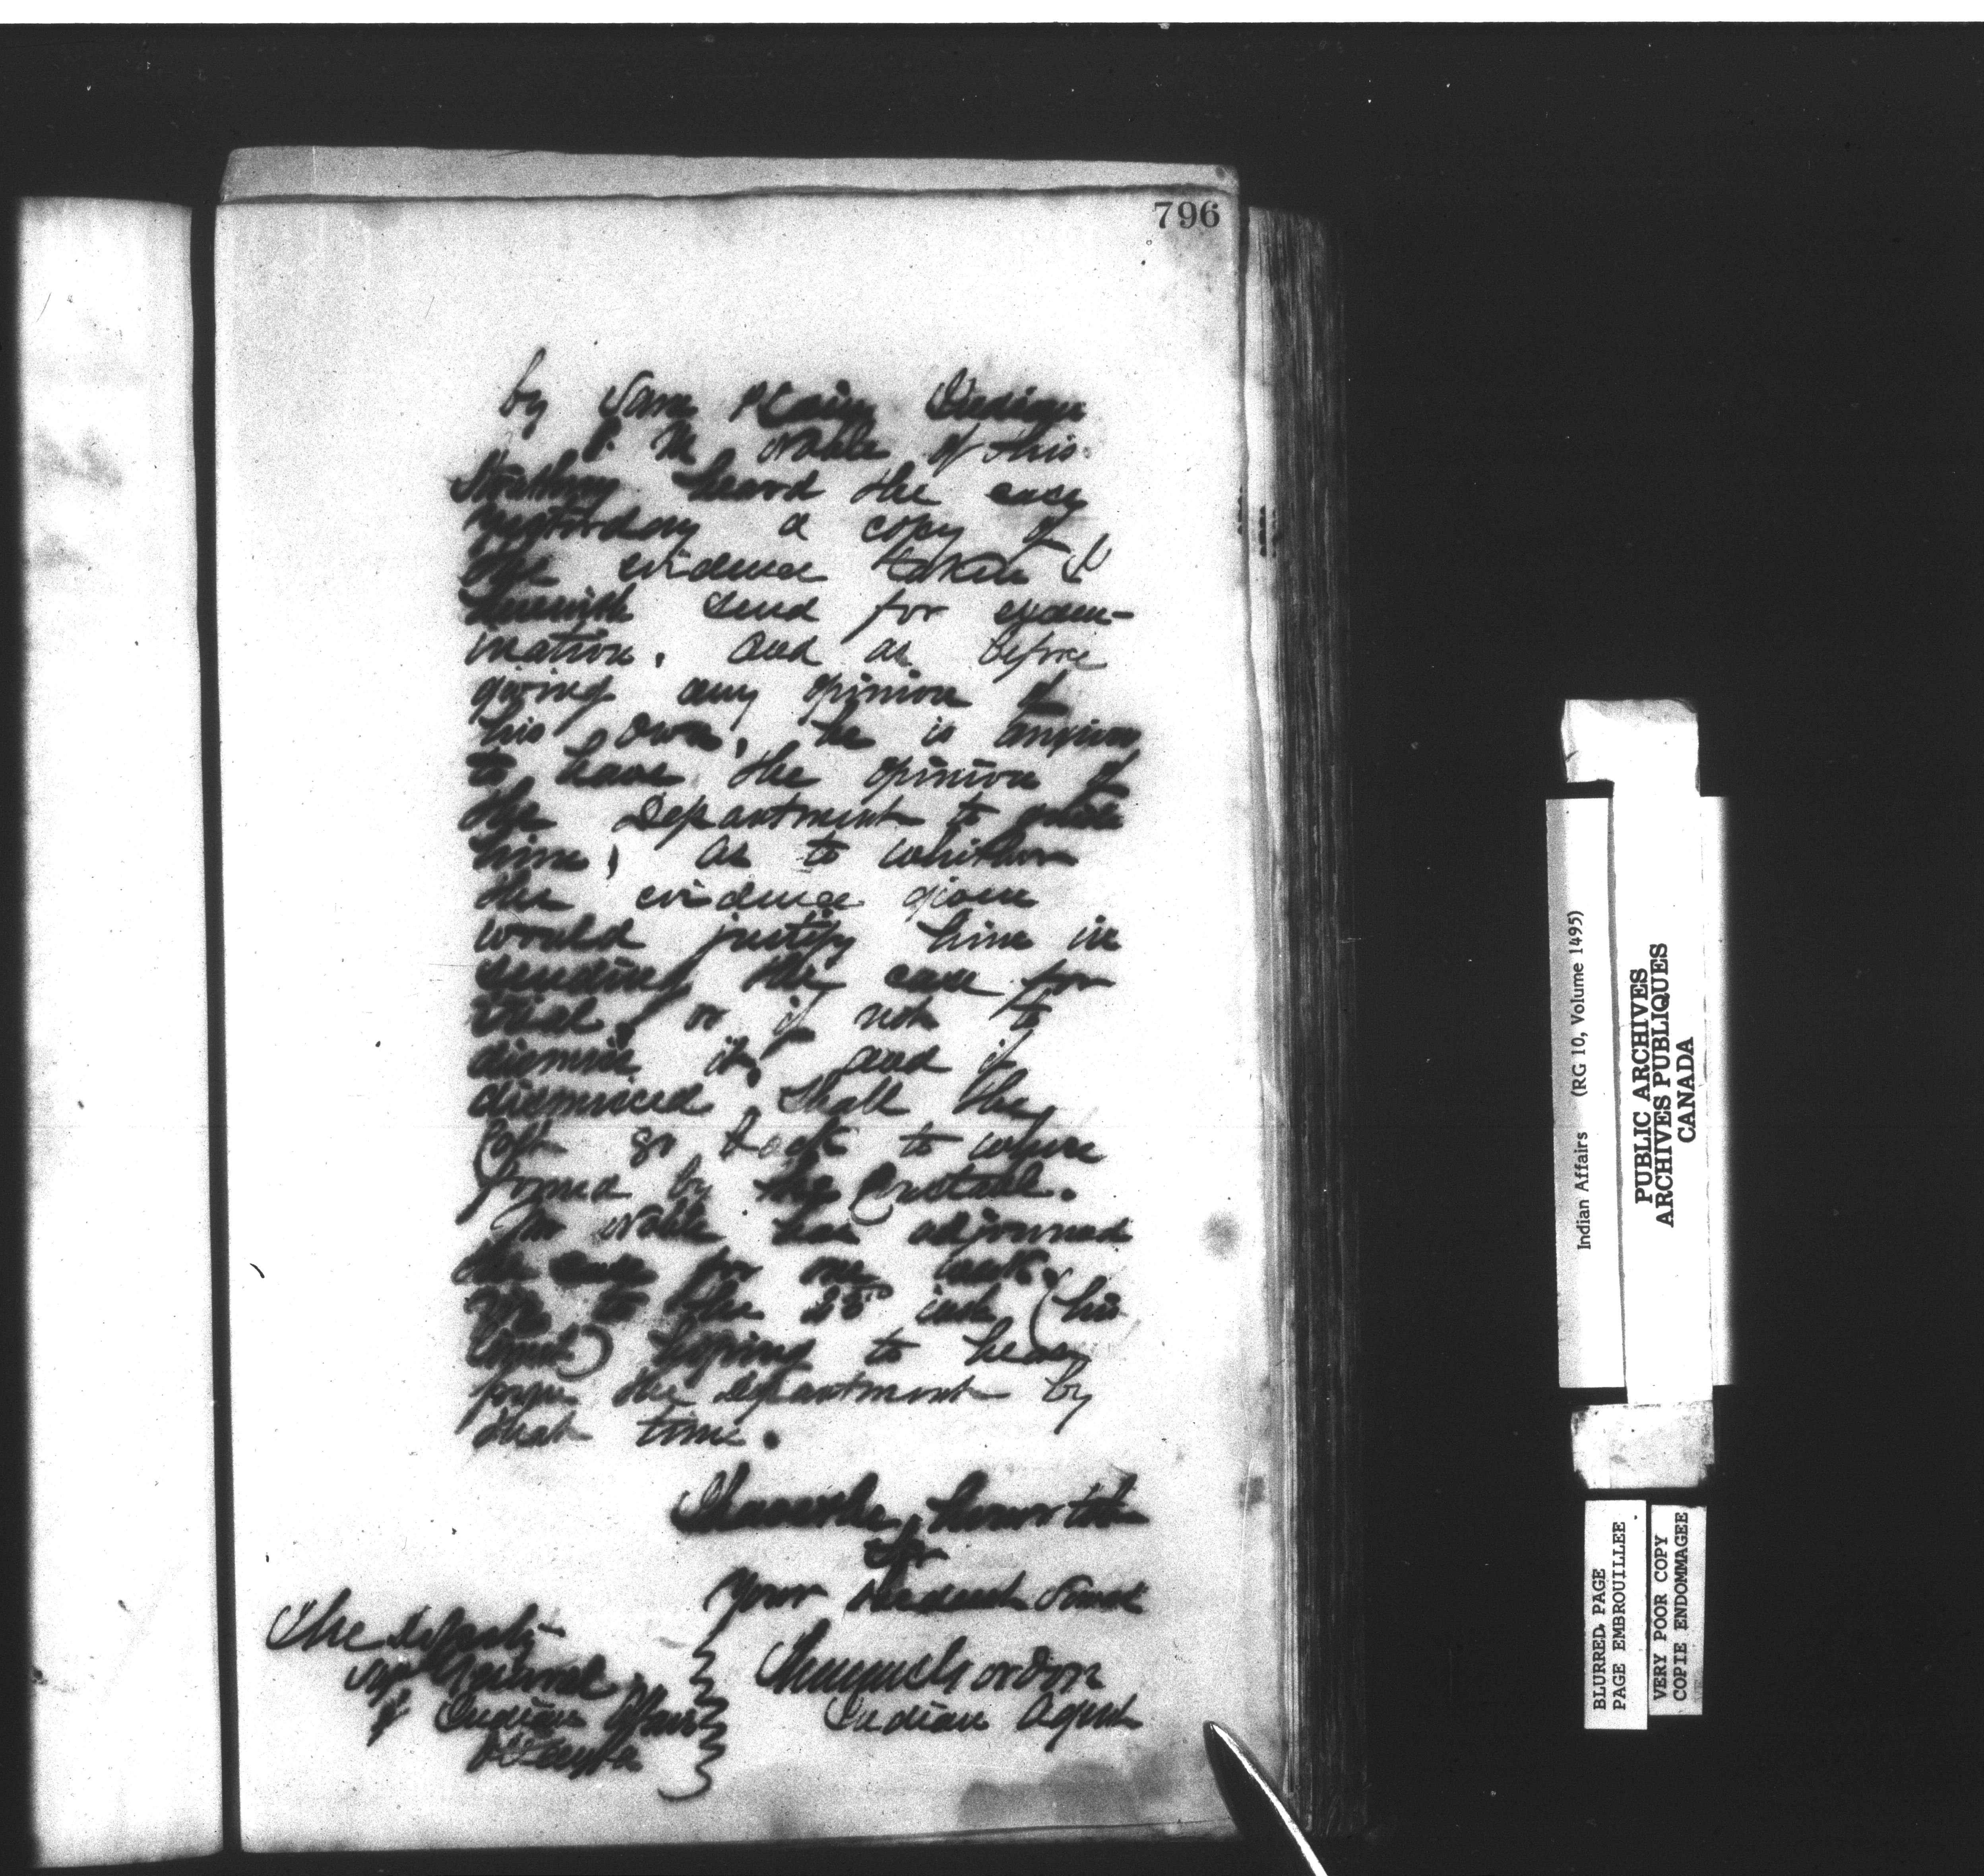 796
by Sam Plain Indian
P. M Noble of this
heard the case
yesterday a copy of
the evidence taken I
herewith send for exam-
ination. and as before
giving any opinion of
his own, he is anxious
to have the opinion of
the Department to guide
him, as to whether
the evidence given
would justify him in
sending the case for
trial, or if not to
dismiss it, and if
dismissed, shall the
Post go back to where
found by the
Mr Noble has adjourned
the case for one week,
to the 25 inst (his
hoping to hear
from the Department by
that time.
I have the honor to be
Sir
Your Obedient Servant
Indian Agent
The Deputy
Supt General
of Indian Affairs
Ottawa
Indian Affairs (RG 10, Volume 1495)
PUBLIC ARCHIVES
ARCHIVES PUBLIQUES
CANADA
BLURRED PAGE
PAGE EMBROUILLEE
VERY POOR COPY
COPIE ENDOMMAGEE